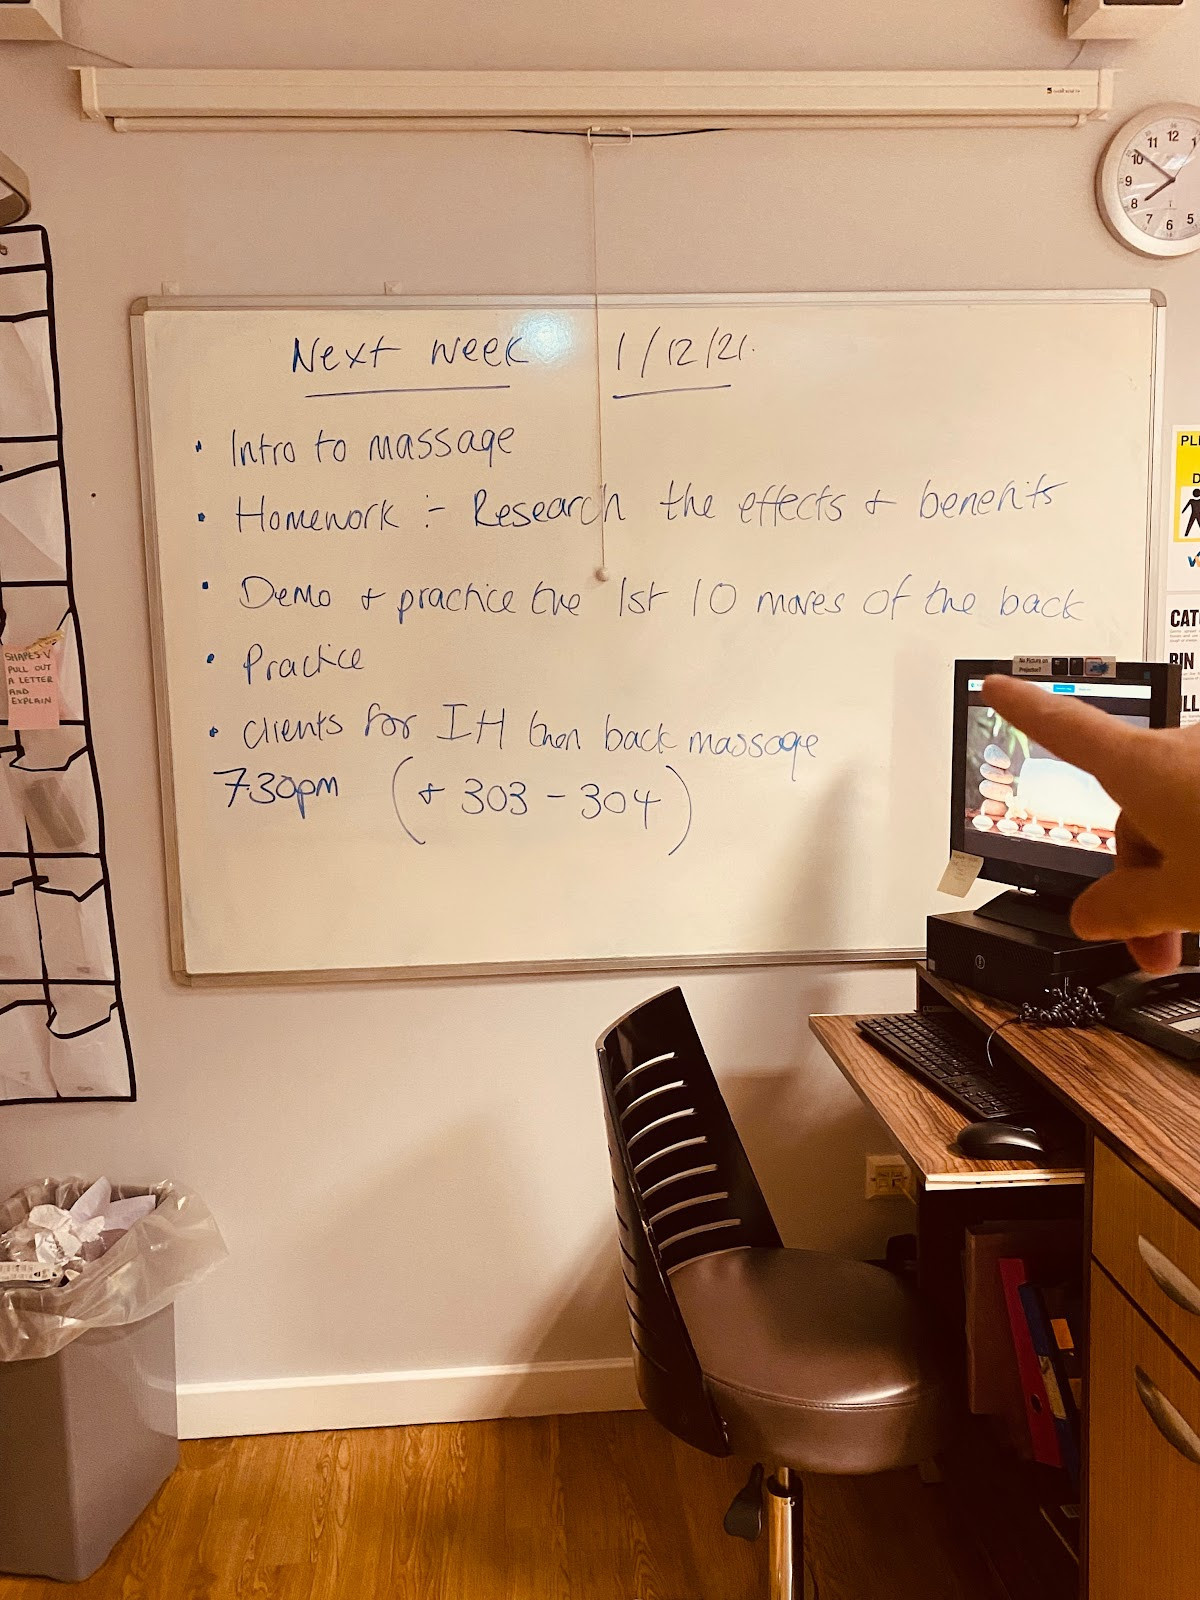 Next week 1/12/21.
• Intro to massage
• Homework :- Research the effects + benefits
• Demo + practice the 1st 10 moves of the back
• Practice
• clients for IH then back massage
7.30pm (+ 303 - 304)
12
11
10
9
8
7
6
5
SHAPES V
PULL OUT
A LETTER
AND
EXPLAIN
No Picture on
Projector?
PL
D
CAT
BIN